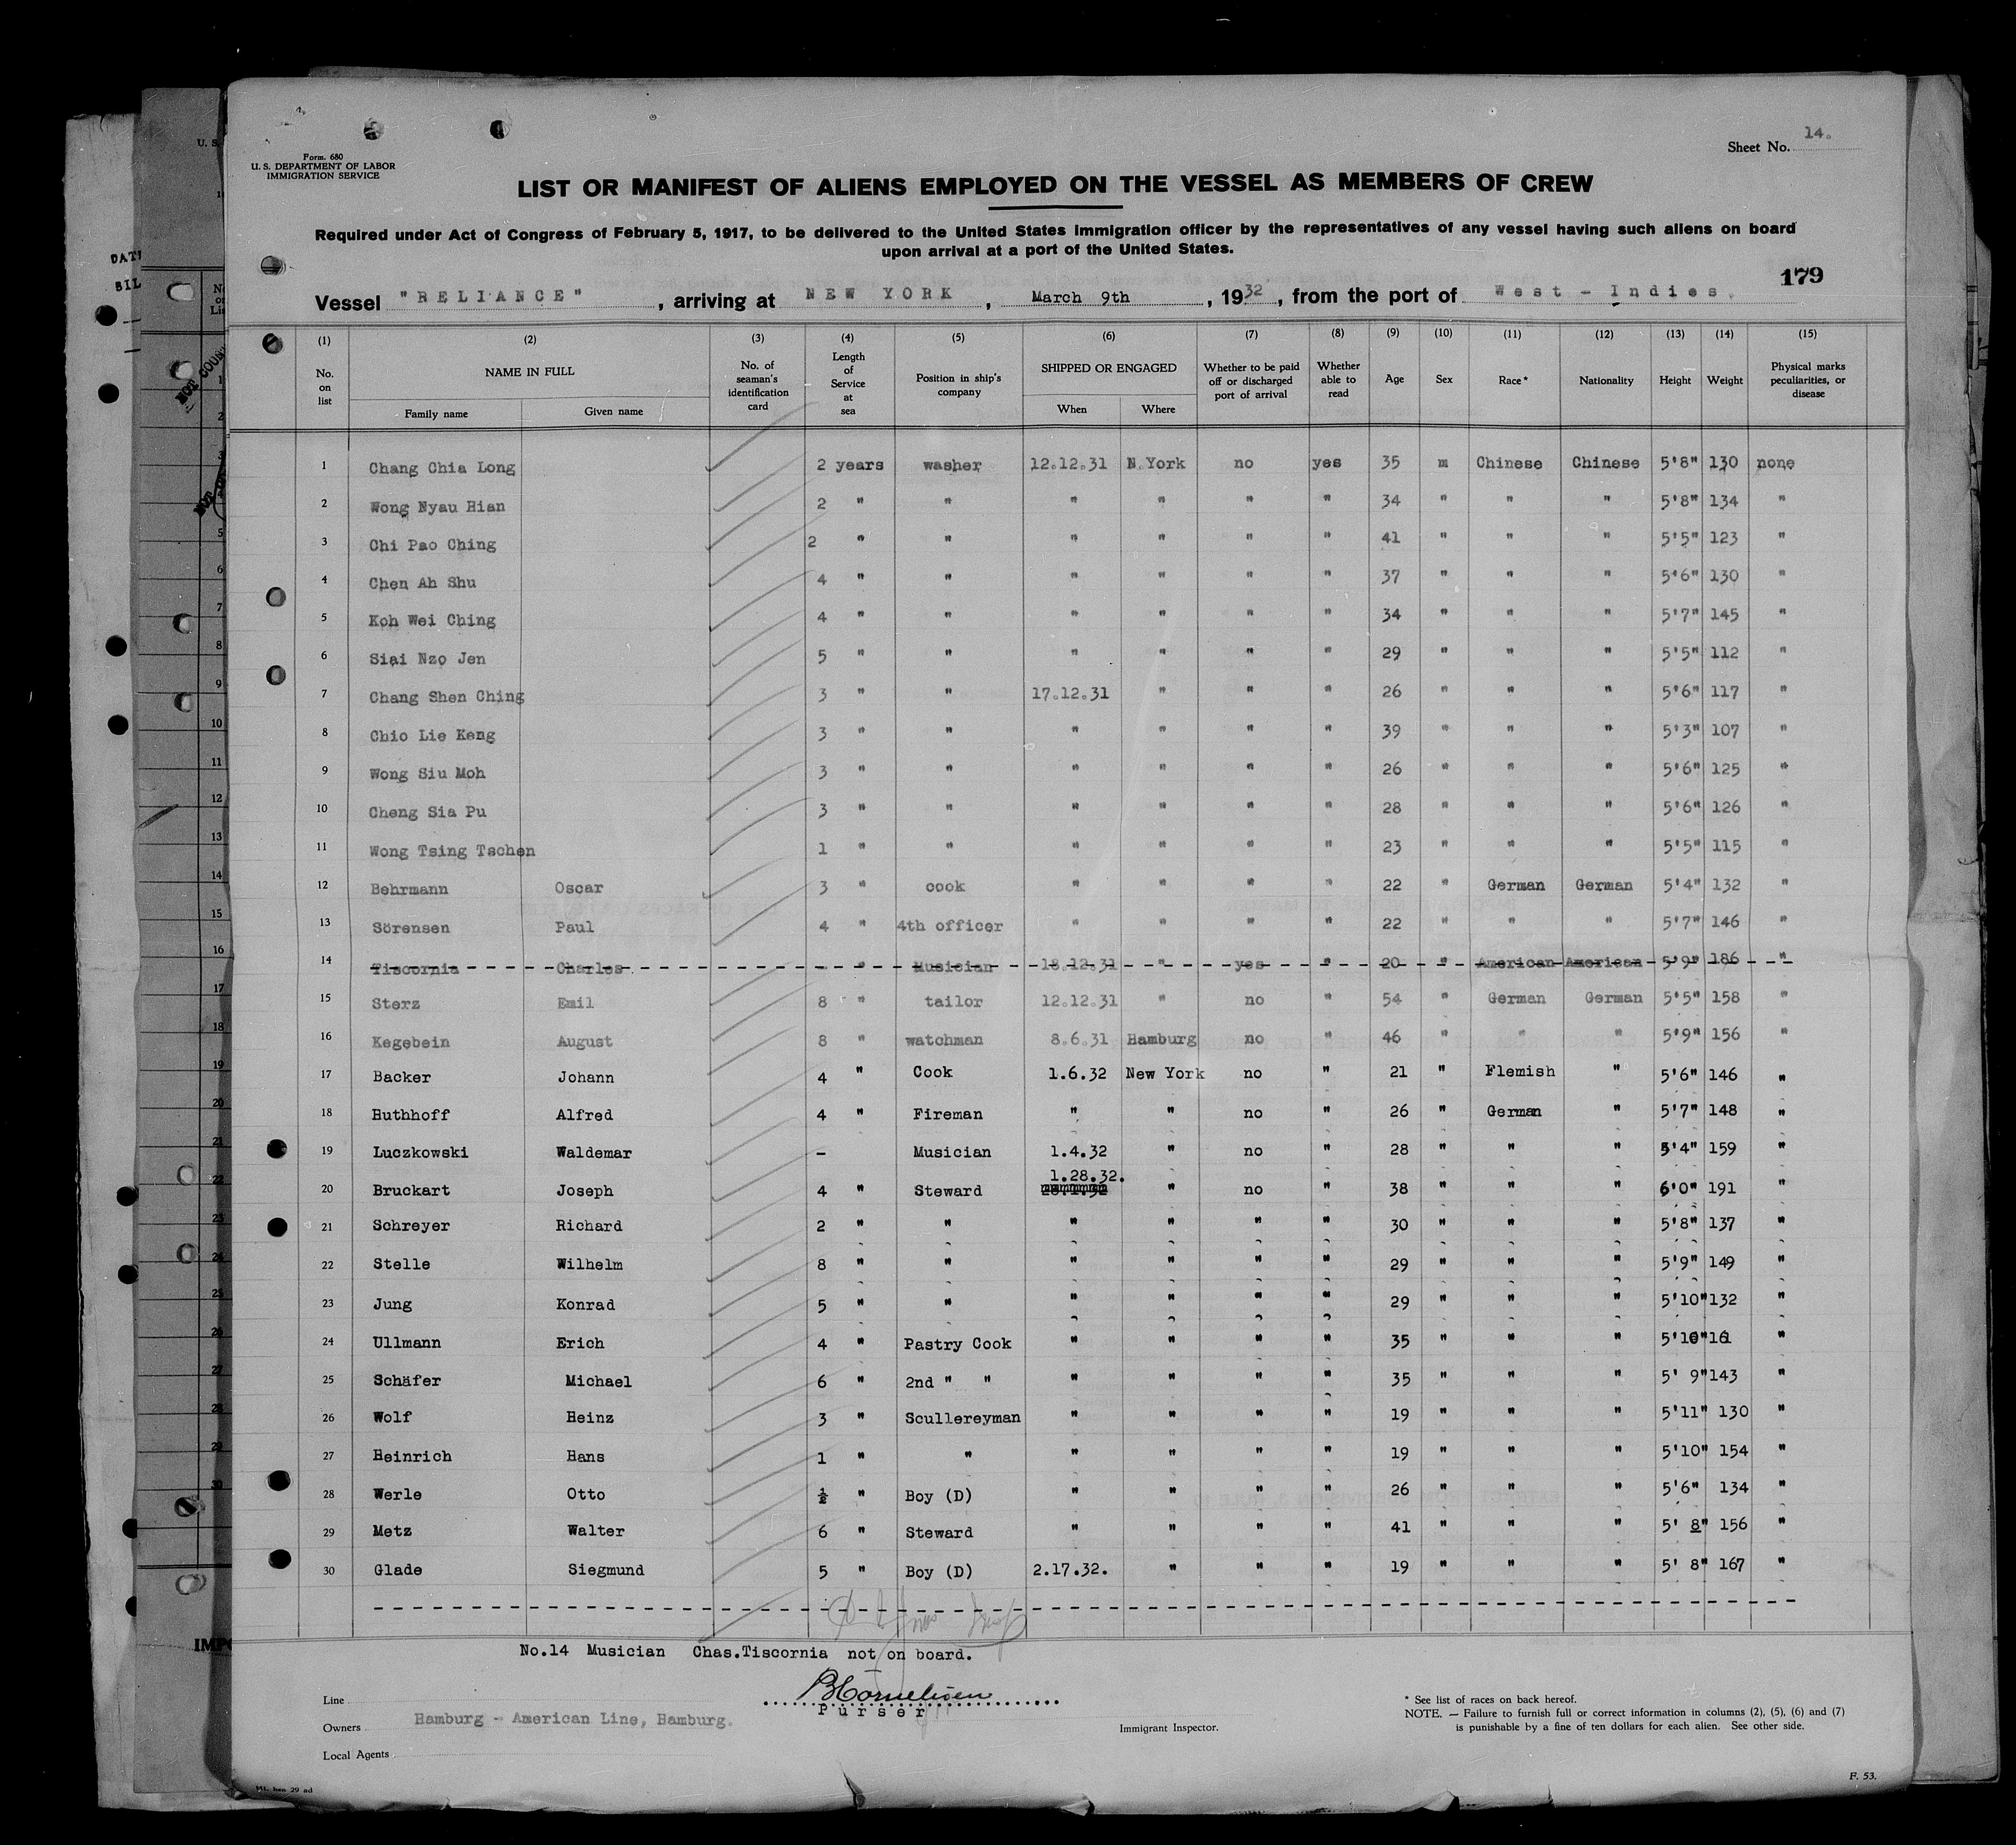 Form. 680
U. S. DEPARTMENT OF LABOR
IMMIGRATION SERVICE
Sheet No. 14.
LIST OR MANIFEST OF ALIENS EMPLOYED ON THE VESSEL AS MEMBERS OF CREW
Required under Act of Congress of February 5, 1917, to be delivered to the United States immigration officer by the representatives of any vessel having such aliens on board
upon arrival at a port of the United States.
179
Vessel "RELIANCE", arriving at NEW YORK, March 9th, 1932, from the port of West - Indies.
(1) (2) (3) (4) (5) (6) (7) (8) (9) (10) (11) (12) (13) (14) (15)
No. on list NAME IN FULL Family name Given name No. of seaman's identification card Length of Service at sea Position in ship's company SHIPPED OR ENGAGED When Where Whether to be paid off or discharged port of arrival Whether able to read Age Sex Race* Nationality Height Weight Physical marks peculiarities, or disease
1 Chang Chia Long 2 years washer 12.12.31 N.York no yes 35 m Chinese Chinese 5'8" 130 none
2 Wong Nyau Hian 2 " " " " " " 34 " " " 5'8" 134 "
3 Chi Pao Ching 2 " " " " " " 41 " " " 5'5" 123 "
4 Chen Ah Shu 4 " " " " " " 37 " " " 5'6" 130 "
5 Koh Wei Ching 4 " " " " " " 34 " " " 5'7" 145 "
6 Siai Nzo Jen 5 " " " " " " 29 " " " 5'5" 112 "
7 Chang Shen Ching 3 " " 17.12.31 " " " 26 " " " 5'6" 117 "
8 Chio Lie Keng 3 " " " " " " 39 " " " 5'3" 107 "
9 Wong Siu Moh 3 " " " " " " 26 " " " 5'6" 125 "
10 Cheng Sia Pu 3 " " " " " " 28 " " " 5'6" 126 "
11 Wong Tsing Tschen 1 " " " " " " 23 " " " 5'5" 115 "
12 Behrmann Oscar 3 " cook " " " " 22 " German German 5'4" 132 "
13 Sörensen Paul 4 " 4th officer " " " " 22 " " " 5'7" 146 "
14 Tiscornia Charles - " Musician 18.12.31 " yes " 20 " American American 5'9" 186 "
15 Sterz Emil 8 " tailor 12.12.31 " no " 54 " German German 5'5" 158 "
16 Kegebein August 8 " watchman 8.6.31 Hamburg no " 46 " " " 5'9" 156 "
17 Backer Johann 4 " Cook 1.6.32 New York no " 21 " Flemish " 5'6" 146 "
18 Buthhoff Alfred 4 " Fireman " " no " 26 " German " 5'7" 148 "
19 Luczkowski Waldemar - Musician 1.4.32 " no " 28 " " " 5'4" 159 "
20 Bruckart Joseph 4 " Steward 1.28.32. " no " 38 " " " 6'0" 191 "
21 Schreyer Richard 2 " " " " " " 30 " " " 5'8" 137 "
22 Stelle Wilhelm 8 " " " " " " 29 " " " 5'9" 149 "
23 Jung Konrad 5 " " " " " " 29 " " " 5'10" 132 "
24 Ullmann Erich 4 " Pastry Cook " " " " 35 " " " 5'10" 161 "
25 Schäfer Michael 6 " 2nd " " " " " " 35 " " " 5' 9" 143 "
26 Wolf Heinz 3 " Scullereyman " " " " 19 " " " 5'11" 130 "
27 Heinrich Hans 1 " " " " " " 19 " " " 5'10" 154 "
28 Werle Otto ½ " Boy (D) " " " " 26 " " " 5'6" 134 "
29 Metz Walter 6 " Steward " " " " 41 " " " 5' 8" 156 "
30 Glade Siegmund 5 " Boy (D) 2.17.32. " " " 19 " " " 5' 8" 167 "
No.14 Musician Chas.Tiscornia not on board.
BCornelisen
Purser
Line
Owners Hamburg - American Line, Hamburg.
Local Agents
Immigrant Inspector.
* See list of races on back hereof.
NOTE. — Failure to furnish full or correct information in columns (2), (5), (6) and (7)
is punishable by a fine of ten dollars for each alien. See other side.
F. 53.